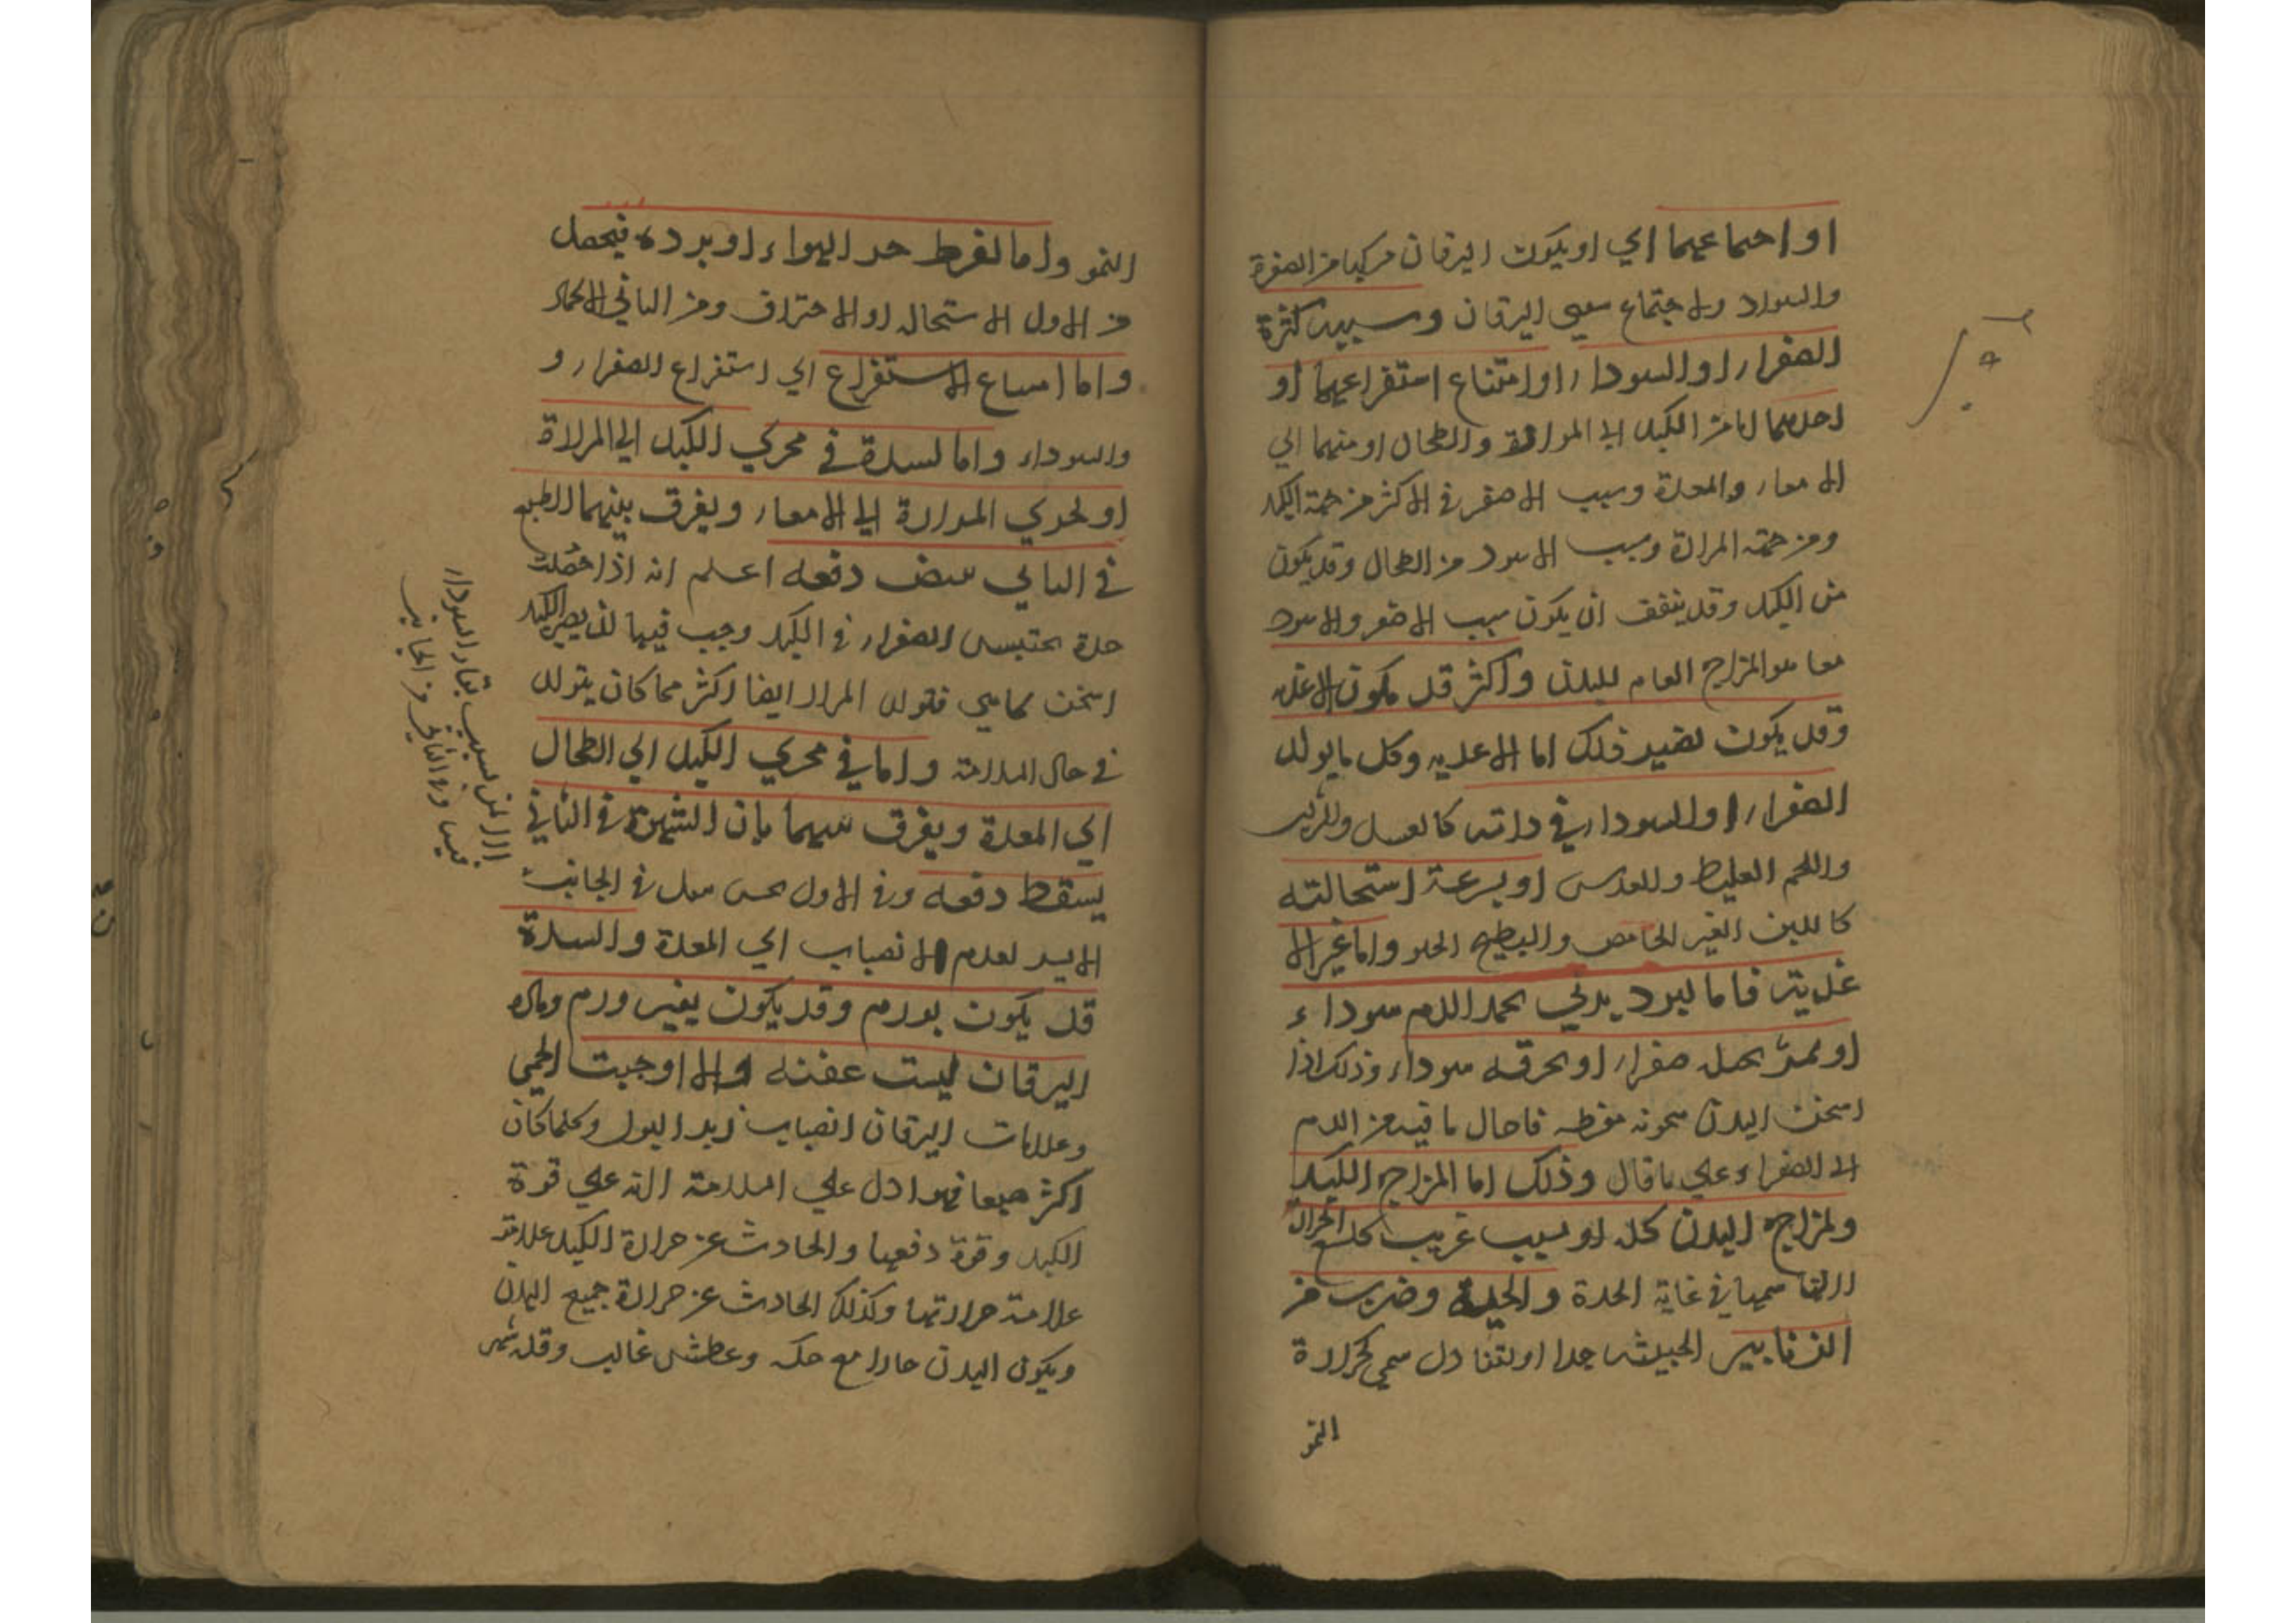 او اجتماعهما اي او يكون اليرقان مركبا من الصفرة
والسواد والاجتماع سببي اليرقان وسببه كثرة
الصفراء او السوداء او امتناع استفراغهما او
احدهما اما من الكبد الى المرارة والطحال او منهما الي
الامعاء والمعدة وسبب الاصفر في الاكثر من جهة الكبد
ومن جهة المرارة وسبب الاسود من الطحال وقد يكون
من الكبد وقد يتفق ان يكون سبب الاصفر والاسود
معا هو المزاج العام للبدن واكثر قد يكون الاغذيه
وقد يكون لغير ذلك اما الاغذيه وكل ما يولد
الصفراء او السوداء في ذاته كالعسل
واللحم الغليظ والعدس او بسرعة استحالته
كاللبن الغير الحامض والبطيخ الحلو واما غير الا
غذية فاما لبرد بدني يجمد الدم سوداء
او لحر يجعله صفراء او يحرقه سوداء وذلك اذا
اسخن البدن سخونه مفرطه فاحال ما فيه من الدم
الا الصفراء وعلي ما قال وذلك اما لمزاج الكبد
ولمزاج البدن كله او لسبب غريب كلسع الحرارة
سمها في غاية الحدة والحية وضرب من
الزنابير الخبيثه جدا او لتناول سمي كمرارة
النمر
النمر واما لفرط حر الهواء او برده فيحصل
من الاول الاستحاله او الاحتراق ومن الثاني الاجماد
واما امتناع الاستفراغ اي استفراغ الصفراء و
والسوداء واما لسدة في مجري الكبد الي المرارة
او لمجري المرارة الي الامعاء ويفرق بينهما الطبع
في الثاني يبيض دفعه اعلم انه اذا حصلت
سدة تحتبس الصفراء في الكبد وجب فيها ان يصير الكبد
اسخن مما هي فتولد المرار ايضا اكثر مما كان يتولد
في حال السلامة واما في مجري الكبد الي الطحال
الي المعدة ويفرق بينهما بان الشهوة في الثاني
يسقط دفعه وفي الاول يحس بثقل في الجانب
الايسر لعدم الانصباب الي المعدة والسدة
قد يكون بورم وقد يكون بغير ورم وماده
اليرقان ليست عفنه والا اوجبت الحمي
وعلامات اليرقان انصباب زبد البول وكلما كان
اكثر صبغا فهو ادل علي السلامة لانه علي قوة
الكبد وقوة دفعها والحادث عن حرارة الكبد علامته
علامة حرارتها وكذلك الحادث عن حرارة جميع البدن
ويكون البدن حارا مع حكه وعطش غالب وقله
بسبب بقاء السوداء
فيه وفي الثاني من الجانب